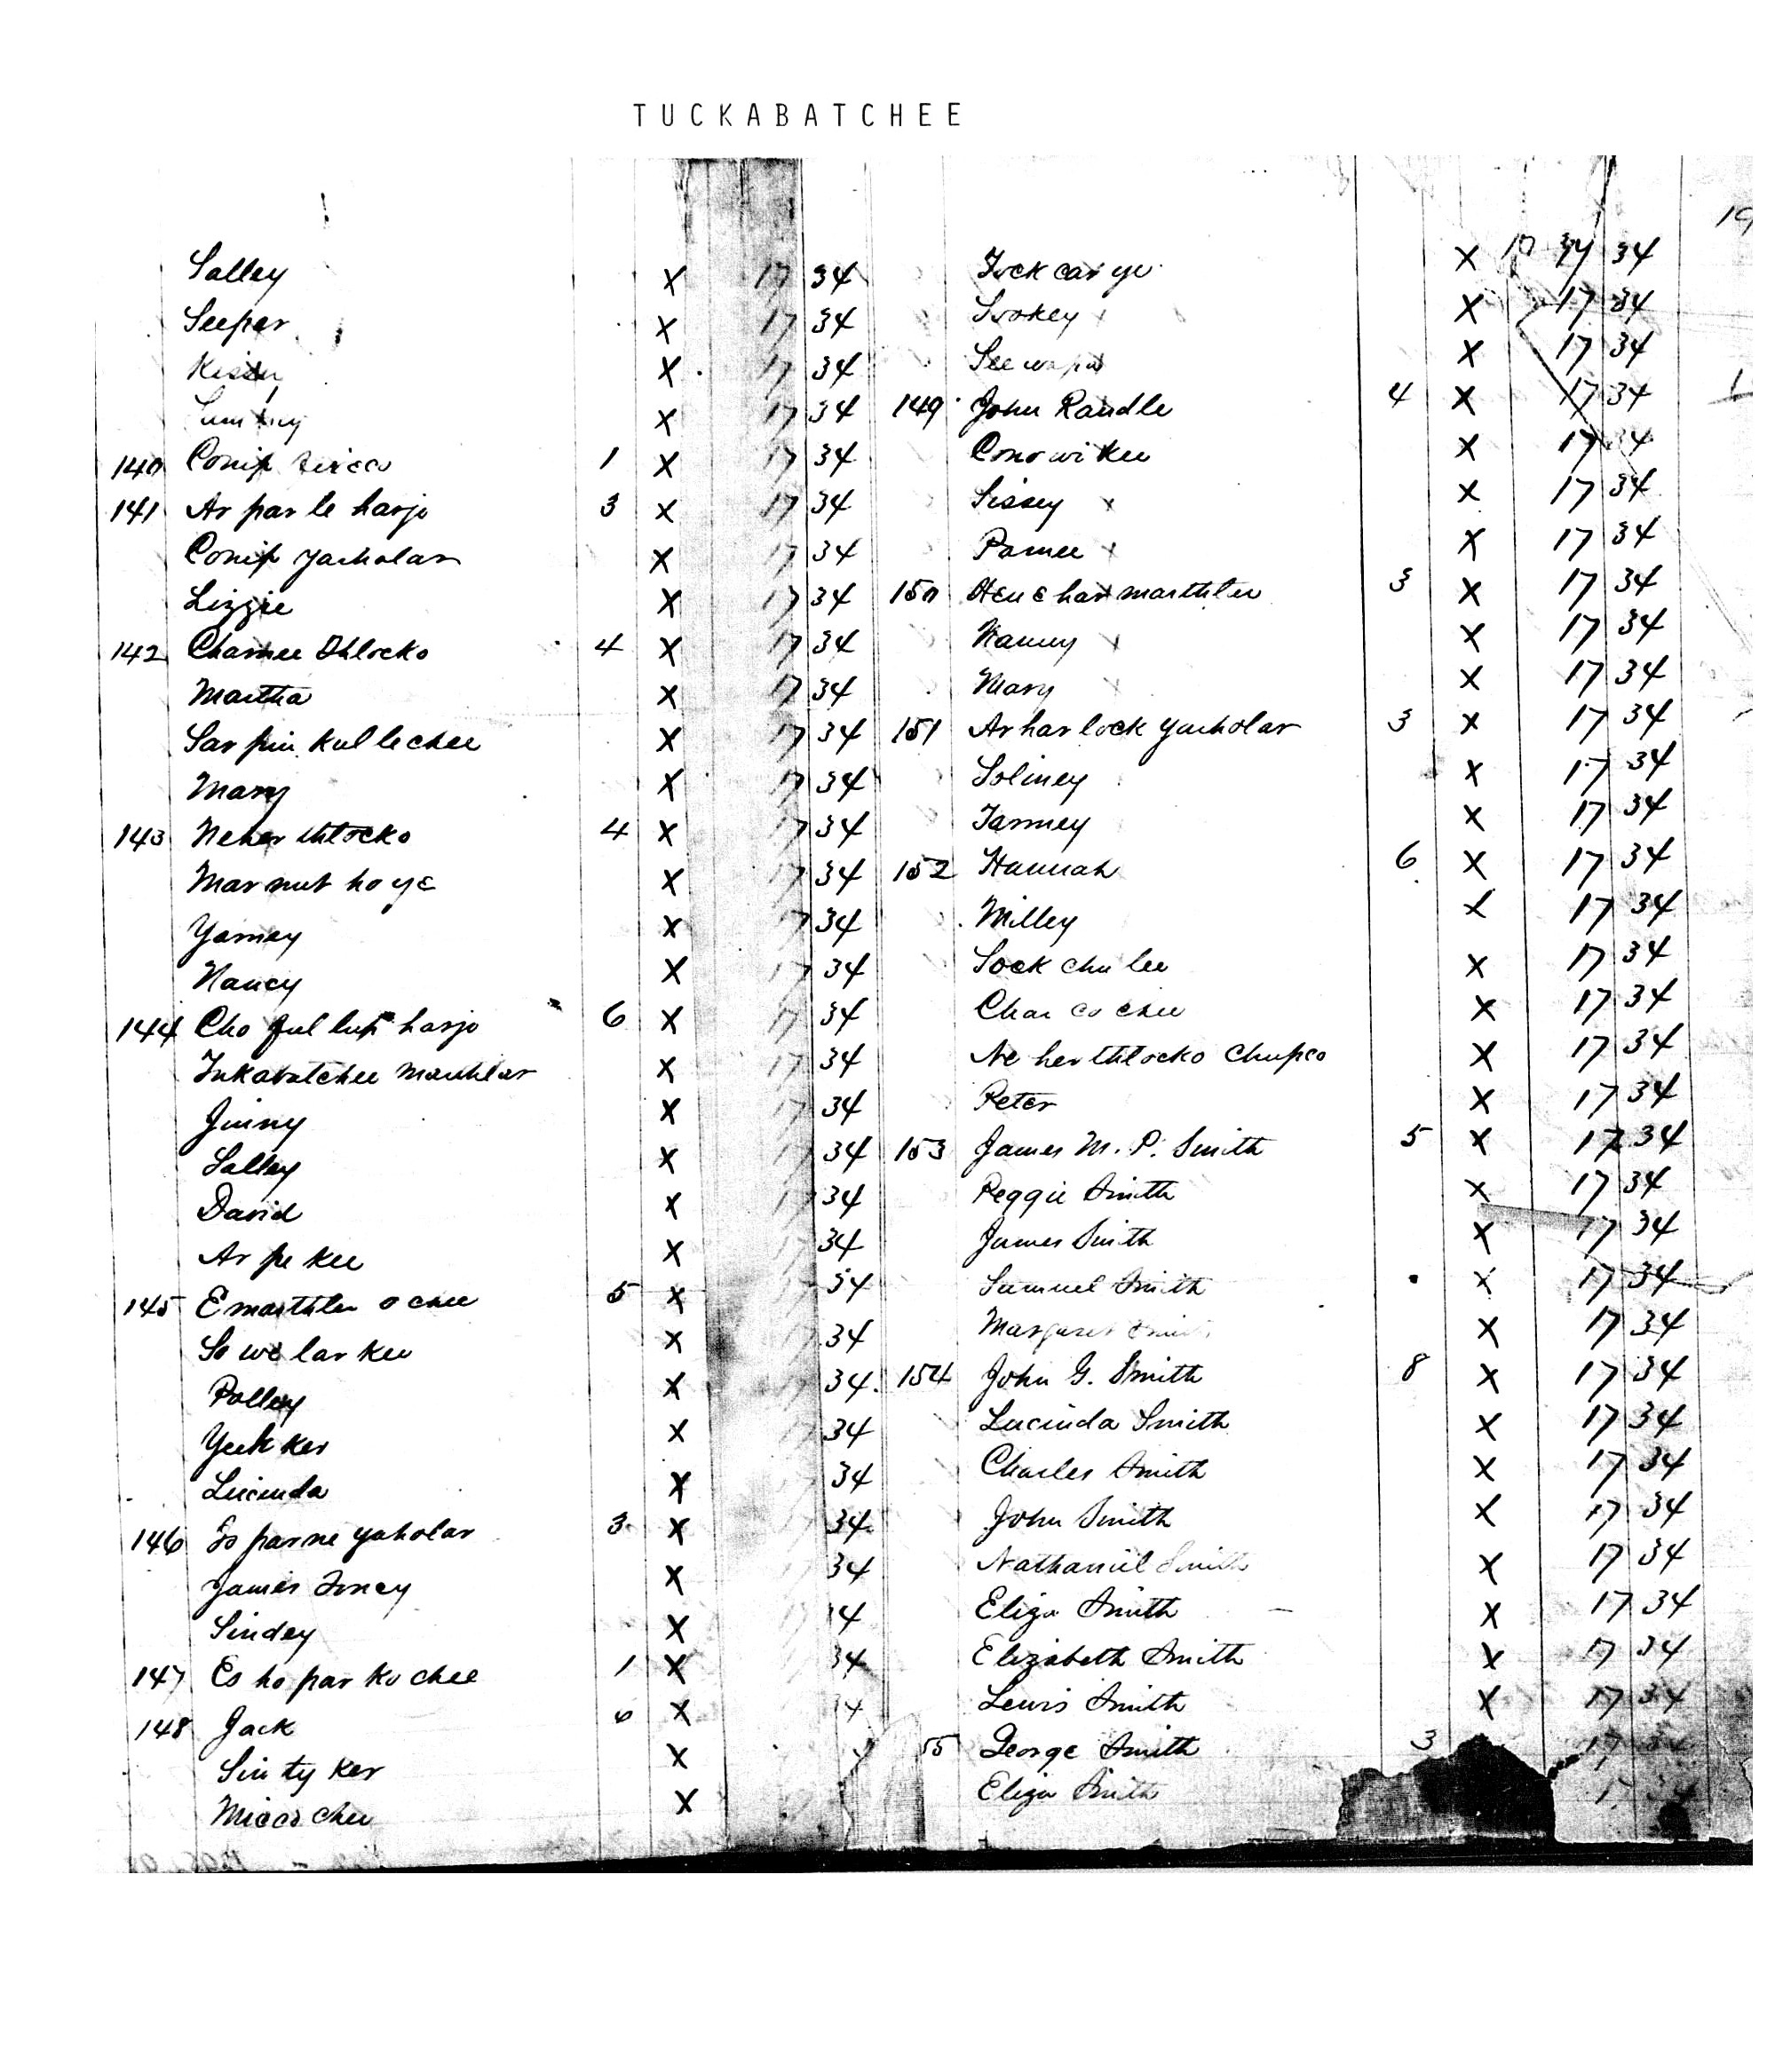 TUCKABATCHEE
Salley X 17 34
Seeper X 17 34
X 17 34
X 17 34
140 Conip 1 X 17 34
141 Ar par le harjo 3 X 17 34
Conip yarholar X 17 34
Lizzie X 17 34
142 Charnee thlocko 4 X 17 34
Martha X 17 34
Sar pin kul le chee X 17 34
Mary X 17 34
143 Neher thlocko 4 X 17 34
Mar nut ho ye X 17 34
Yarney X 17 34
Nancy X 17 34
144 Cho ful lup harjo 6 X 17 34
Tukabatchee marthlar X 17 34
Jinny X 17 34
Salley X 17 34
David X 17 34
Ar pe kee X 17 34
145 Emarthlee o chee 5 X 34
So we lar kee X 17 34
Polley X 34
Yeek ker X 34
Lucinda X 34
146 So par ne yaholar 3 X 34
James Toney X 34
Sindey X 4
147 Es ho par ko chee 1 X 34
148 Jack 6 X 4
Sin ty ker X
Micco chee X
Tock car ye X 17 34 34
Sookey X 17 34
See X 17 34
149 John Randle 4 X 17 34
Cono wi kee X 17 34
Sissey X 17 34
Parnee X 17 34
150 Hene har marthlee 3 X 17 34
Nancy X 17 34
Mary X 17 34
151 Ar har lock yarholar 3 X 17 34
Soliney X 17 34
Tarmey X 17 34
152 Hannah 6 X 17 34
Milley X 17 34
Sock chu lee X 17 34
Char co chee X 17 34
Ne her thlocko Chupco X 17 34
Peter X 17 34
153 James M. P. Smith 5 X 17 34
Peggie Smith X 17 34
James Smith X 17 34
Samuel Smith X 17 34
Margaret Smith X 17 34
154 John G. Smith 8 X 17 34
Lucinda Smith X 17 34
Charles Smith X 17 34
John Smith X 17 34
Nathaniel Smith X 17 34
Eliza Smith X 17 34
Elizabeth Smith X 17 34
Lewis Smith X 17 34
55 George Smith 3 17 34
Eliza Smith 17 34